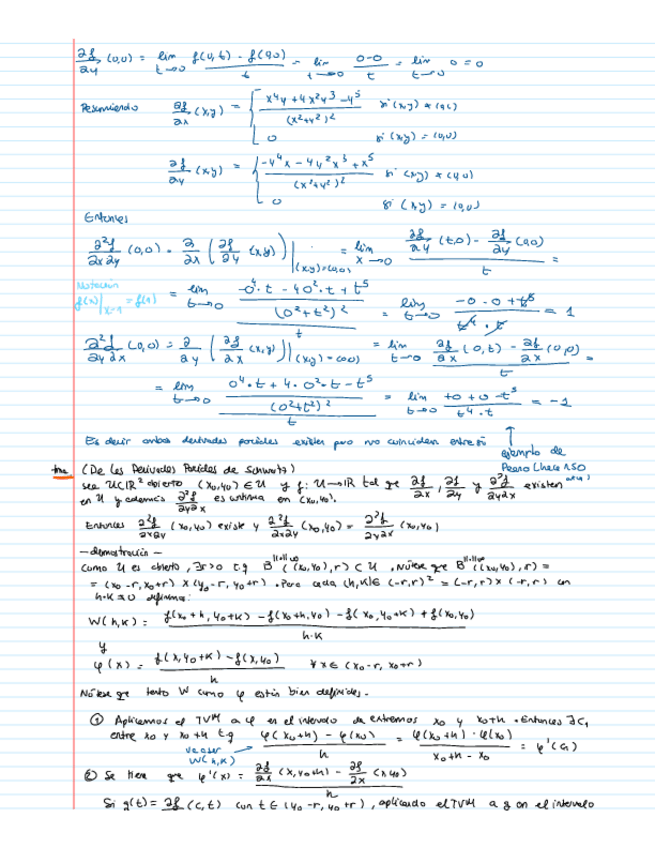 ∂f/∂y (0,0) = lim t→0 (f(0,t) - f(0,0))/t = lim t→0 (0-0)/t = lim t→0 0 = 0
Resumiendo ∂f/∂x (x,y) = { (x⁴y + 4x²y³ - y⁵)/(x²+y²)² si (x,y) ≠ (0,0)
0 si (x,y) = (0,0)
∂f/∂y (x,y) = { (-y⁴x - 4y²x³ + x⁵)/(x²+y²)² si (x,y) ≠ (0,0)
0 si (x,y) = (0,0)
Entonces
∂²f/∂x∂y (0,0) = ∂/∂x ( ∂f/∂y (x,y) ) |(x,y)=(0,0) = lim x→0 (∂f/∂y (t,0) - ∂f/∂y (0,0))/t =
Notación f(x)|x=1 = f(1)
= lim t→0 ((-0⁴·t - 4·0²·t + t⁵)/(0²+t²)²)/t = lim t→0 (-0-0+t⁵)/(t⁴·t) = 1
∂²f/∂y∂x (0,0) = ∂/∂y ( ∂f/∂x (x,y) ) |(x,y)=(0,0) = lim t→0 (∂f/∂x (0,t) - ∂f/∂x (0,0))/t =
= lim t→0 ((0⁴·t + 4·0²·t - t⁵)/(0²+t²)²)/t = lim t→0 (+0+0-t⁵)/(t⁴·t) = -1
Es decir ambas derivadas parciales existen pero no coinciden entre sí
ejemplo de
tma (De las Derivadas Parciales de Schwartz)
sea U⊂ℝ² abierto (x₀,y₀) ∈ U y f: U→ℝ tal que ∂f/∂x, ∂f/∂y y ∂²f/∂y∂x existen
en U y además ∂²f/∂y∂x es continua en (x₀,y₀).
Entonces ∂²f/∂x∂y (x₀,y₀) existe y ∂²f/∂x∂y (x₀,y₀) = ∂²f/∂y∂x (x₀,y₀)
- demostración -
como U es abierto, ∃r>0 t.q B^‖·‖∞((x₀,y₀),r) ⊂ U. Nótese que B^‖·‖∞((x₀,y₀),r) =
= (x₀-r, x₀+r) × (y₀-r, y₀+r). Para cada (h,k)∈ (-r,r)² = (-r,r) × (-r,r) con
h·k ≠ 0 definimos:
W(h,k) = (f(x₀+h, y₀+k) - f(x₀+h, y₀) - f(x₀, y₀+k) + f(x₀,y₀))/(h·k)
y
φ(x) = (f(x, y₀+k) - f(x,y₀))/k ∀x∈ (x₀-r, x₀+r)
Nótese que tanto W como φ están bien definidas.
① Aplicamos el TVM a φ en el intervalo de extremos x₀ y x₀+h. Entonces ∃c₁
entre x₀ y x₀+h t.q (φ(x₀+h) - φ(x₀))/h = (φ(x₀+h) - φ(x₀))/(x₀+h - x₀) = φ'(c₁)
va a ser W(h,k)
② Se tiene que φ'(x) = (∂f/∂x (x, y₀+k) - ∂f/∂x (x,y₀))/k
Si g(t) = ∂f/∂x (c,t) con t∈(y₀-r, y₀+r), aplicando el TVM a g en el intervalo